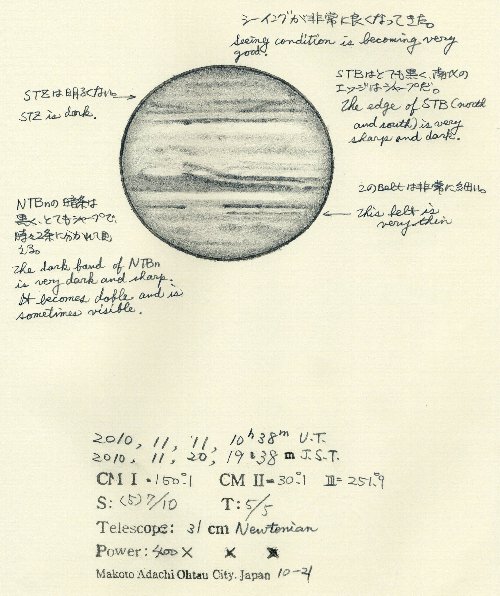 シーイングが非常に良くなってきた。
Seeing condition is becoming very
good.
STZは明るくない。
STZ is dark.
STBはとても黒く、南北の
エッジはシャープだ。
The edge of STB (north
and south) is very
sharp and dark.
このBeltは非常に細い。
This belt is
very thin
NTBnの暗条は
黒く、とてもシャープで、
時々2条に分かれて見
える。
The dark band of NTBn
is very dark and sharp.
It becomes doble and is
sometimes visible.
2010, 11, 11, 10h 38m U.T.
2010, 11, 20, 19:38 m J.S.T.
CM I = 150.°1 CM II = 30.°1 III = 251.°9
S: (5) 7/10 T: 5/5
Telescope: 31 cm Newtonian
Power: 400 × × ×
Makoto Adachi Ohtsu City, Japan 10-21